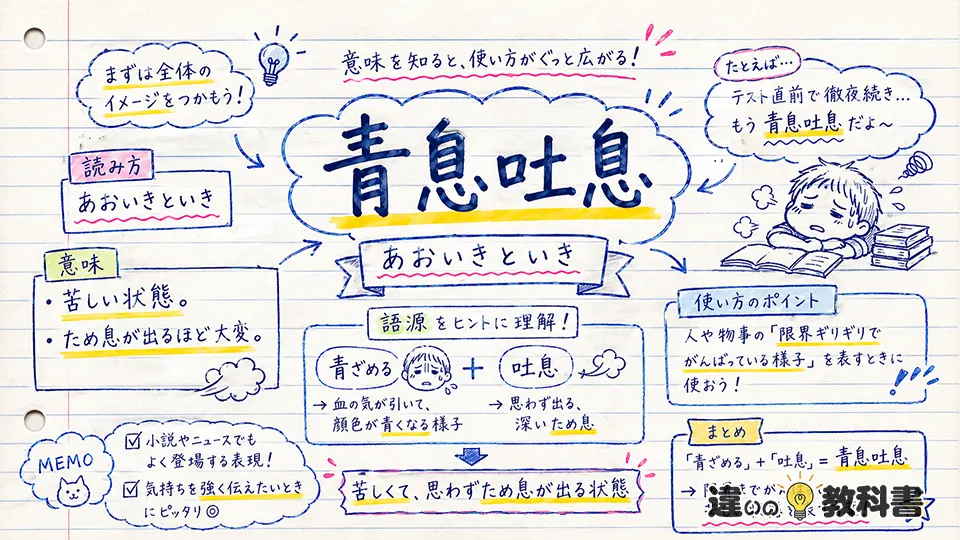 まずは全体の
イメージをつかもう!
意味を知ると、使い方がぐっと広がる!
たとえば…
テスト直前で徹夜続き…
もう青息吐息だよ〜
青息吐息
あおいきといき
読み方
あおいきといき
意味
・苦しい状態。
・ため息が出るほど大変。
語源をヒントに理解!
青ざめる + 吐息
→ 血の気が引いて、
顔色が青くなる様子
→ 思わず出る、
深いため息
苦しくて、思わずため息が出る状態
使い方のポイント
人や物事の「限界ギリギリで
がんばっている様子」を表すときに
使おう!
MEMO
☑ 小説やニュースでも
よく登場する表現!
☑ 気持ちを強く伝えたいとき
にピッタリ◎
まとめ
「青ざめる」+「吐息」= 青息吐息
→
違いの教科書